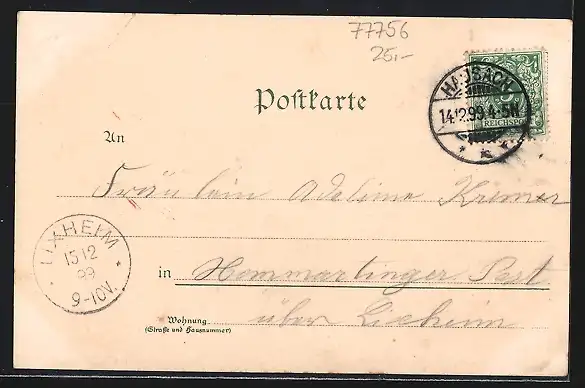 77756
25,-
HAUSACH
14.12.99.4-5N
REICHSPOST
Postkarte
An
Fräulein Adeline Krimer
LIXHEIM
15 12
99
9-10V.
in Hommartinger Post
über Lixheim
Wohnung
(Straße und Hausnummer)